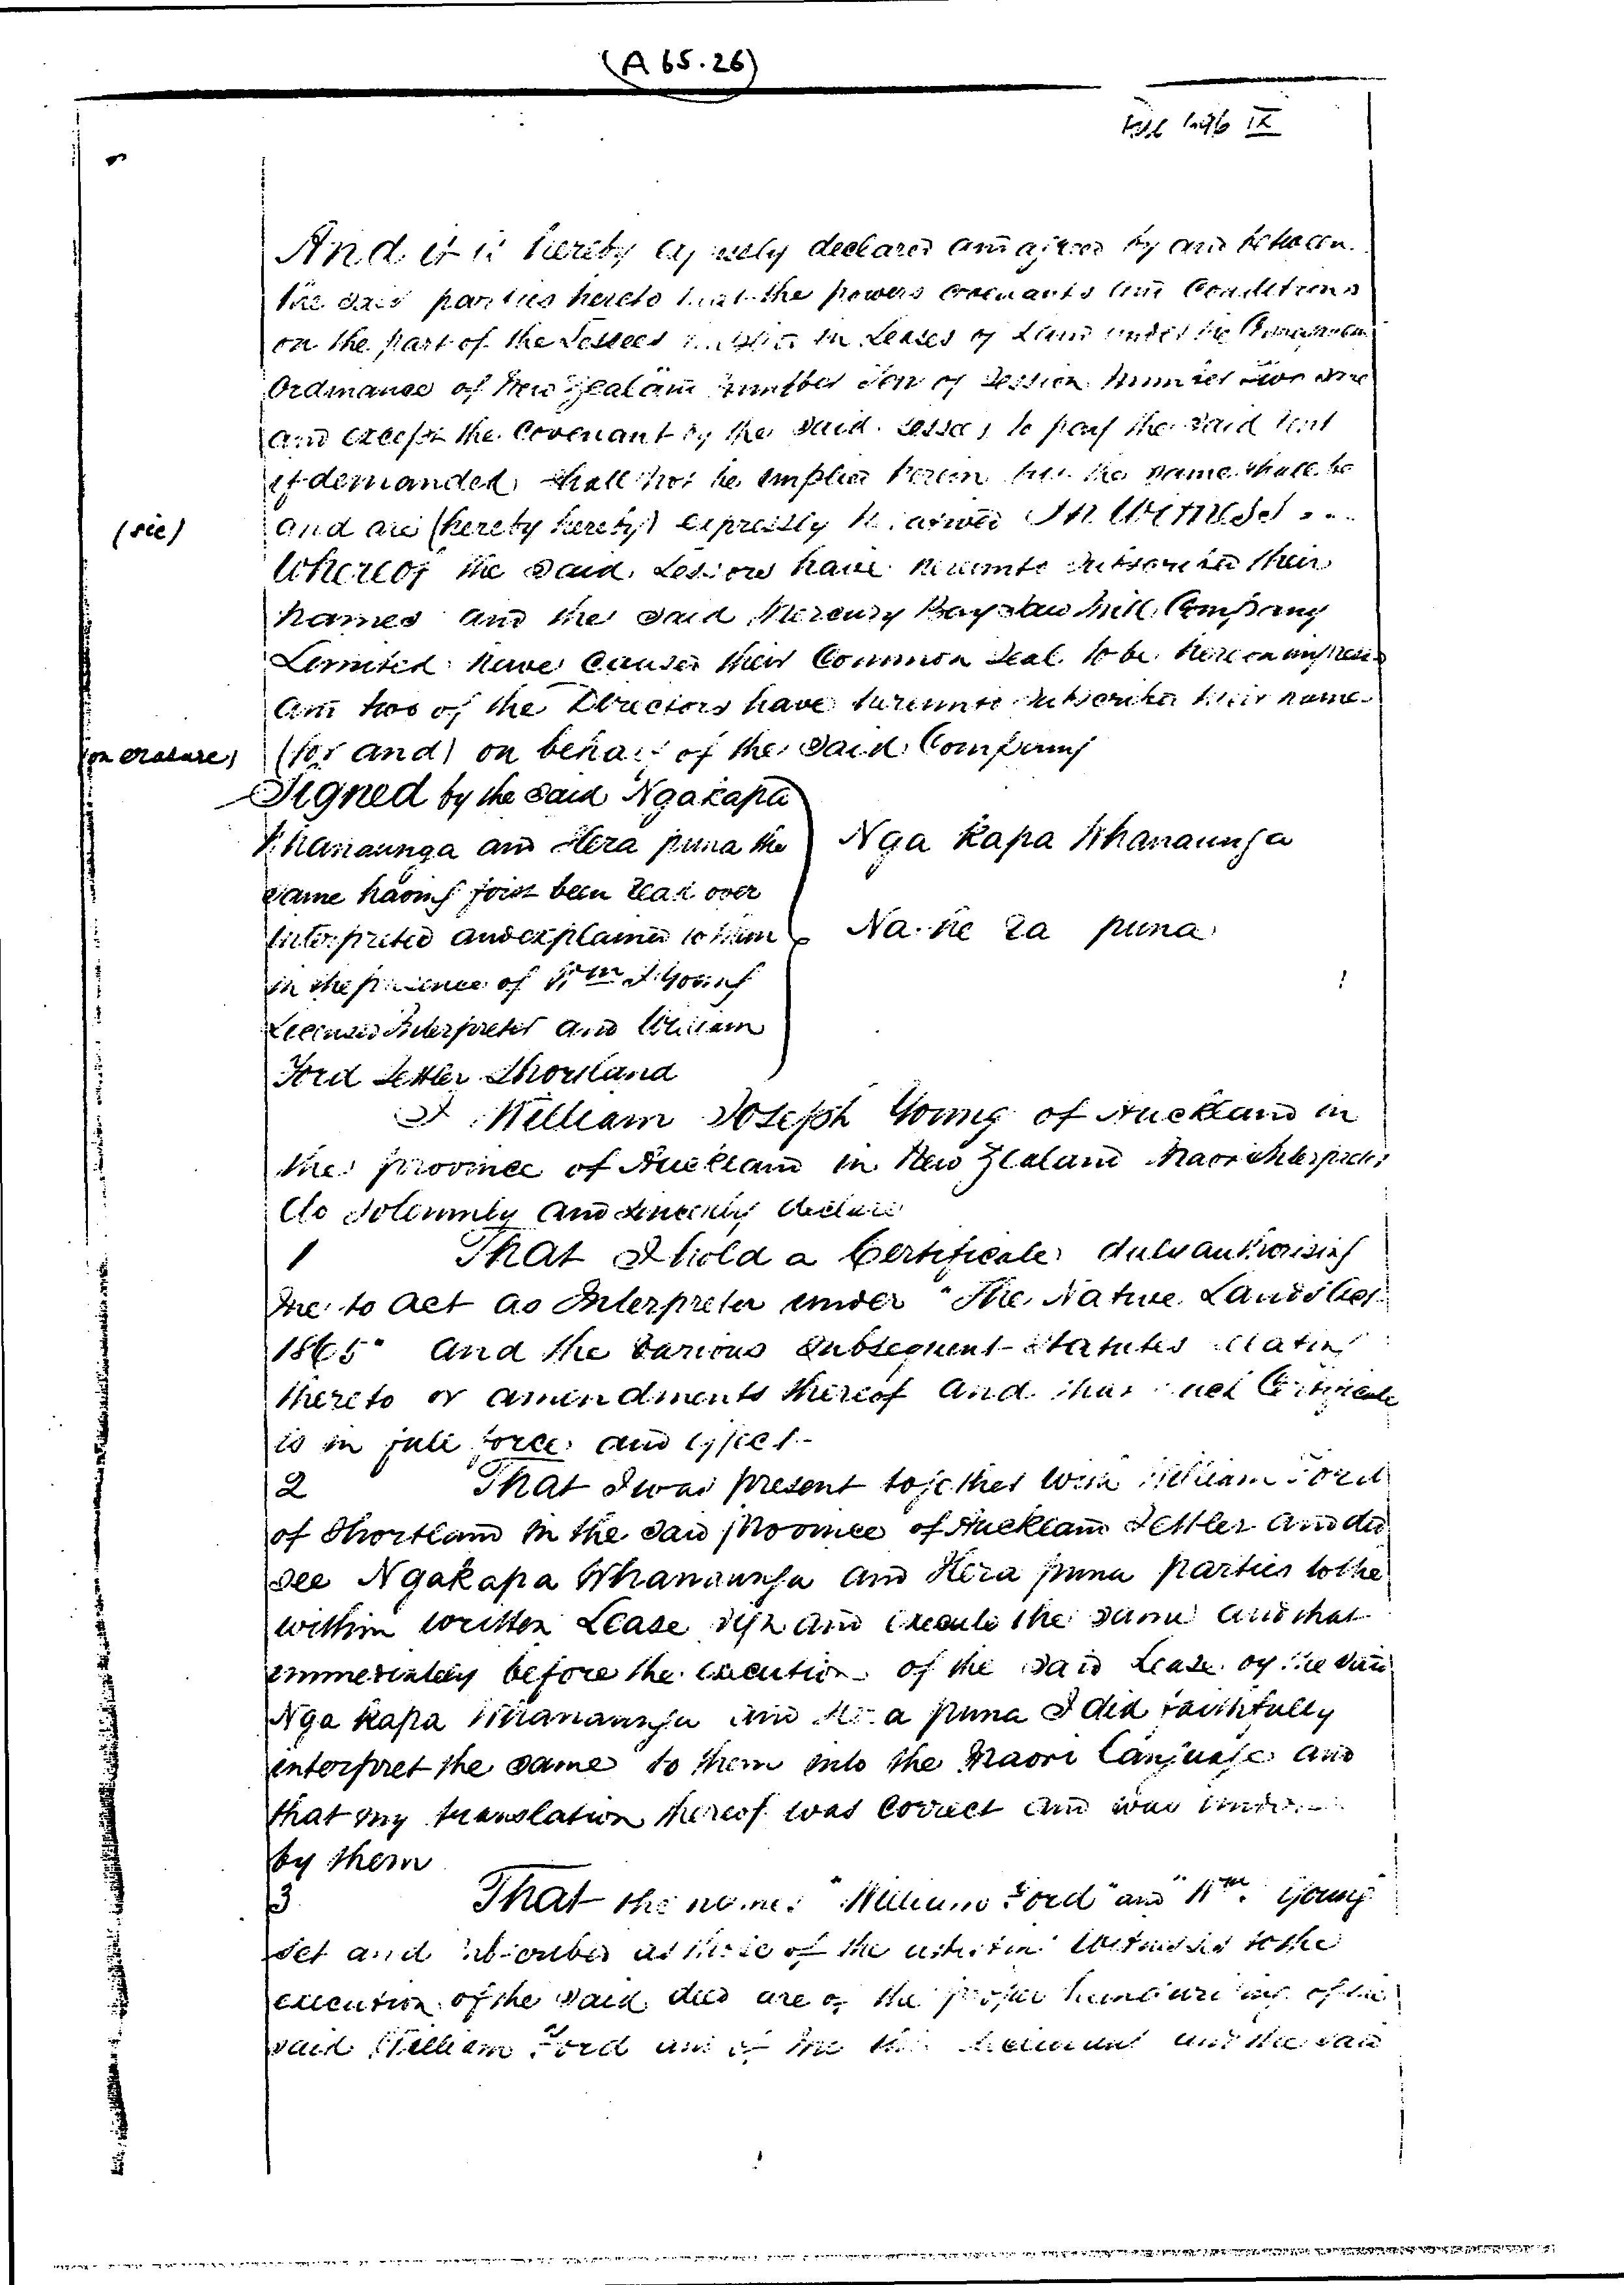 (A 65.26)
IX
And it is hereby expressly declared and agreed by and between
the said parties hereto that the powers covenants and Conditions
on the part of the Lessees implied in Leases of Land under the Conveyancing
Ordinance of New Zealand number Ten of Session number Two are
and except the Covenant by the said Lessees to pay the said rent
if demanded shall not be implied herein but the same shall be
(sic)
and are (hereby hereby) expressly negatived In Witness ...
Whereof the said Lessors have hereunto subscribed their
names and the said Mercury Bay Saw Mill Company
Limited have caused their Common Seal to be hereon impressed
and two of the Directors have hereunto subscribed their name
(on erasure)
(for and) on behalf of the said Company
Signed by the said Ngakapa
Whanaunga and Hera puna the
same having first been read over
interpreted and explained to them
in the presence of Wm J Young
Licensed Interpreter and William
Ford Settler Shortland
Nga Kapa Whanaunga
Na he ra puna
I William Joseph Young of Auckland in
the province of Auckland in New Zealand Maori Interpreter
do solemnly and sincerely declare
1 That I hold a Certificate duly authorising
me to act as Interpreter under "The Native Lands Act
1865" and the various subsequent Statutes relating
thereto or amendments thereof and that such Certificate
is in full force and effect -
2 That I was present together with William Ford
of Shortland in the said province of Auckland Settler and did
see Ngakapa Whanaunga and Hera puna parties to the
within written Lease sign and execute the same and that
immediately before the execution of the said Lease by the said
Nga kapa Whanaunga and Hera puna I did faithfully
interpret the same to them into the Maori language and
that my translation thereof was correct and was
by them
3 That the names "William Ford" and "Wm. Young"
set and subscribed as those of the attesting Witnesses to the
execution of the said deed are of the proper handwriting of the
said William Ford and of me this declarant and the said